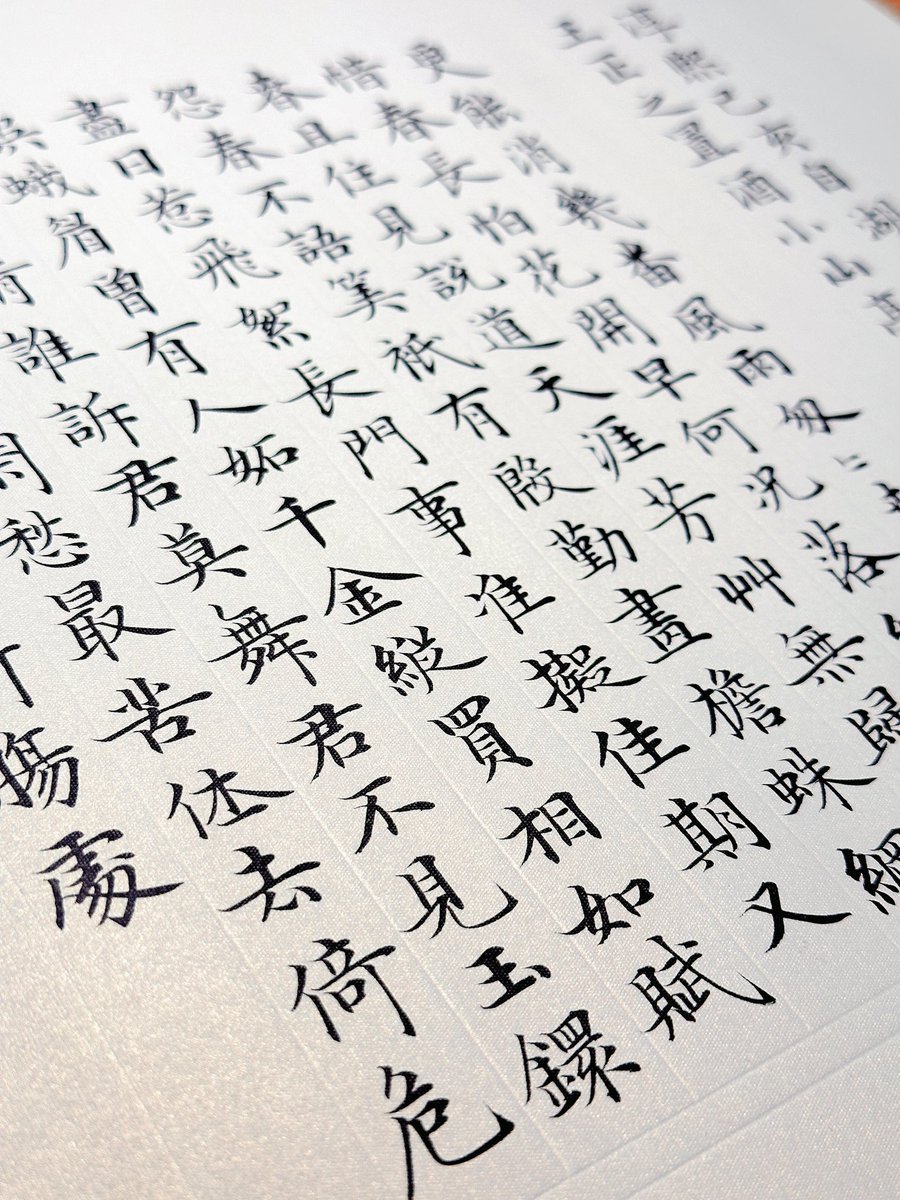 淳熙己亥自湖
王正之置酒小山
更能消幾番風雨匆〻
惜春長怕花開早何況落
春且住見說道天涯芳艸無歸
怨春不語筭祇有殷勤畫檐蛛網
盡日惹飛絮長門事准擬佳期又
誤蛾眉曾有人妬千金縱買相如賦
情誰訴君莫舞君不見玉鐶
閒愁最苦休去倚危
腸處